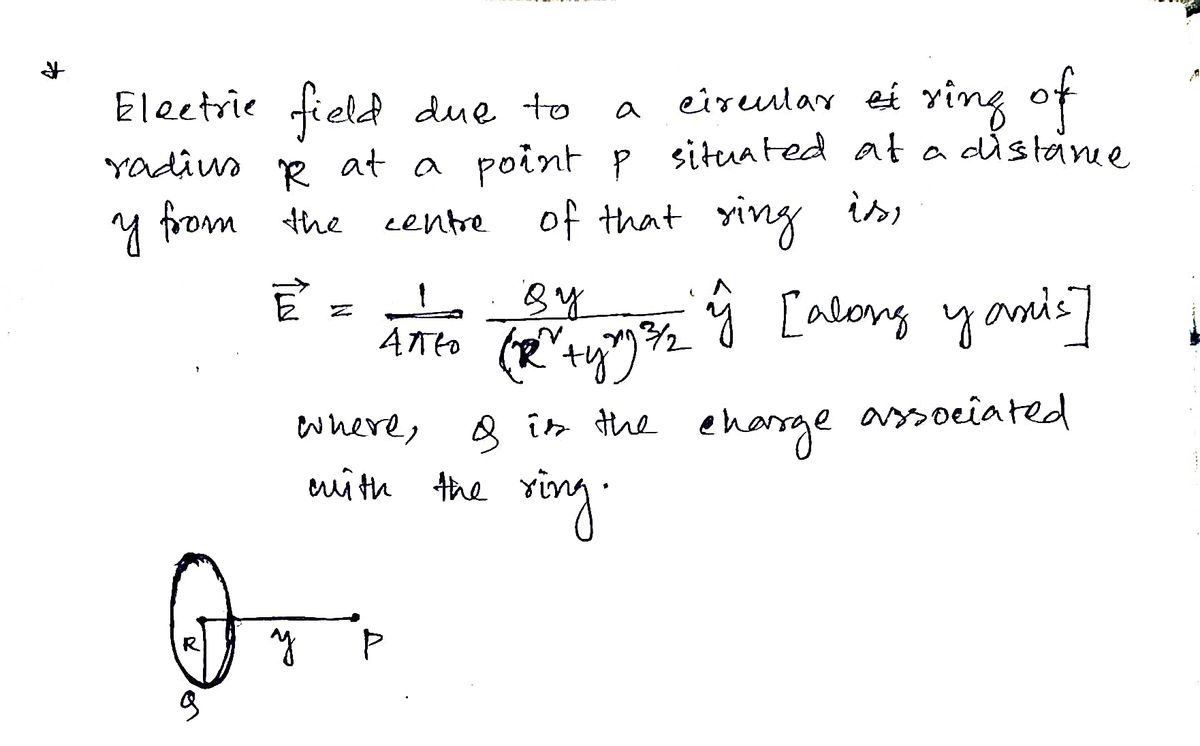 *
Electric field due to a circular ring of
radius R at a point P situated at a distance
y from the centre of that ring is,
E⃗ = 1/4πε₀ · Qy/(R²+y²)^3/2 ŷ [along y axis]
where, Q is the charge associated
with the ring.
R y P
Q